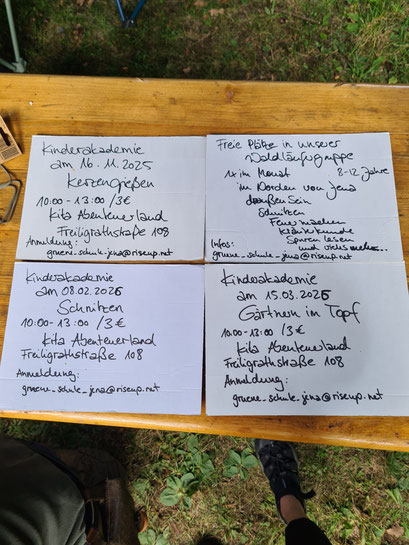 Kinderakademie
am 16.11.2025
Kerzengießen
10:00-13:00 /3€
Kita Abenteuerland
Freiligrathstraße 108
Anmeldung:
gruene_schule_jena@riseup.net
Freie Plätze in unserer
Waldläufergruppe
1x im Monat 8-12 Jahre
im Norden von Jena
draußen Sein
Schnitzen
Feuer machen
Kräuterkunde
Spuren lesen
und vieles mehr...
Infos:
gruene_schule_jena@riseup.net
Kinderakademie
am 08.02.2026
Schnitzen
10:00-13:00 /3€
Kita Abenteuerland
Freiligrathstraße 108
Anmeldung:
gruene_schule_jena@riseup.net
Kinderakademie
am 15.03.2026
Gärtnern im Topf
10:00-13:00 /3€
Kita Abenteuerland
Freiligrathstraße 108
Anmeldung:
gruene_schule_jena@riseup.net